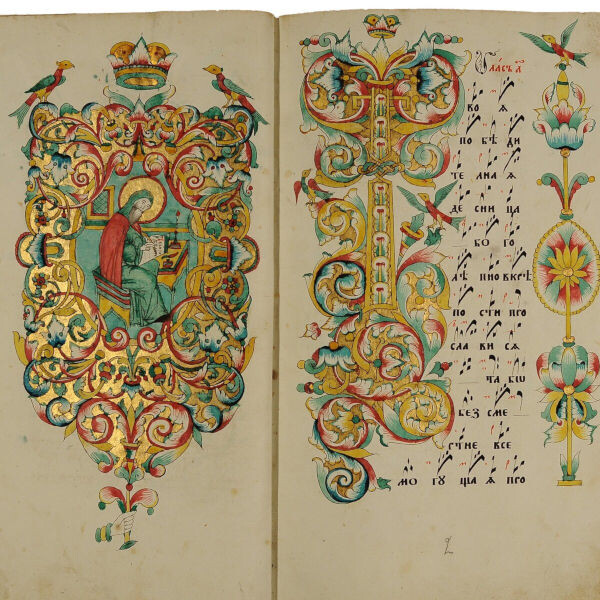 Гласъ а҃
Т ВО Ѧ
ПО БѢ ДИ
ТЕ ЛНА Ѧ
ДЕ СНИ ЦА
БО ГО
ЛѢ ПНО В КРѢ
ПО СТИ ПРО
СЛА ВИ СѦ
ТА БѠ
БЕЗ СМЕ
РТНЕ ВСЕ
МО ГУ ЩА Ѧ ПРО
2